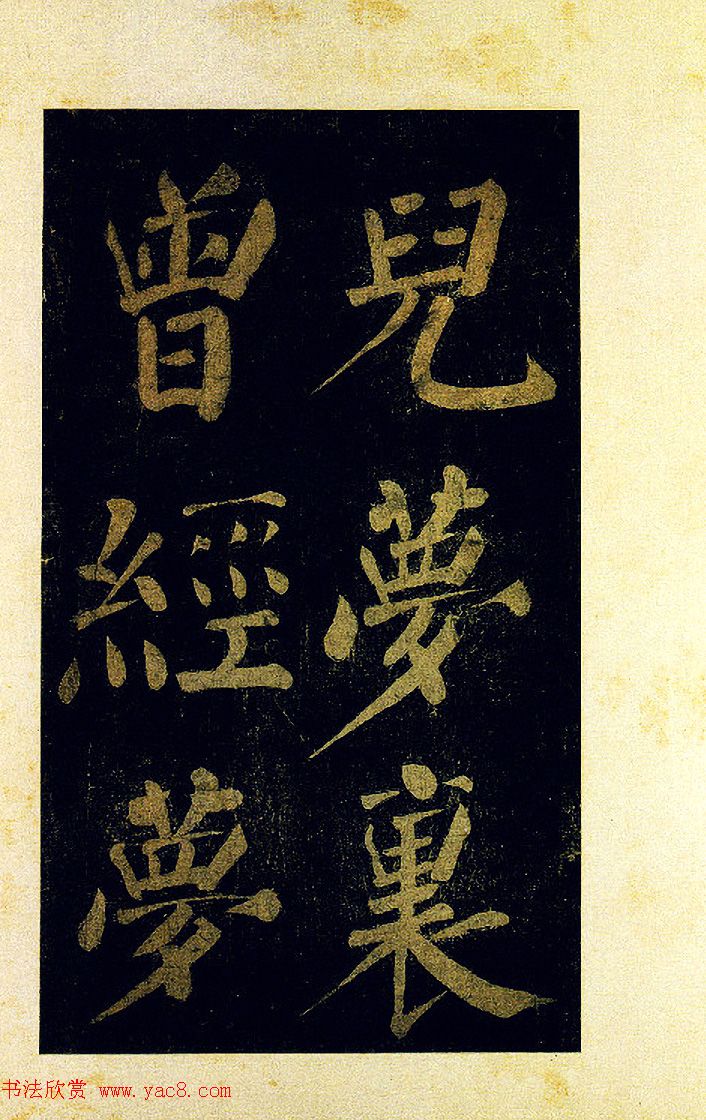 兒夢裏
曾經夢
书法欣赏 www.yac8.com